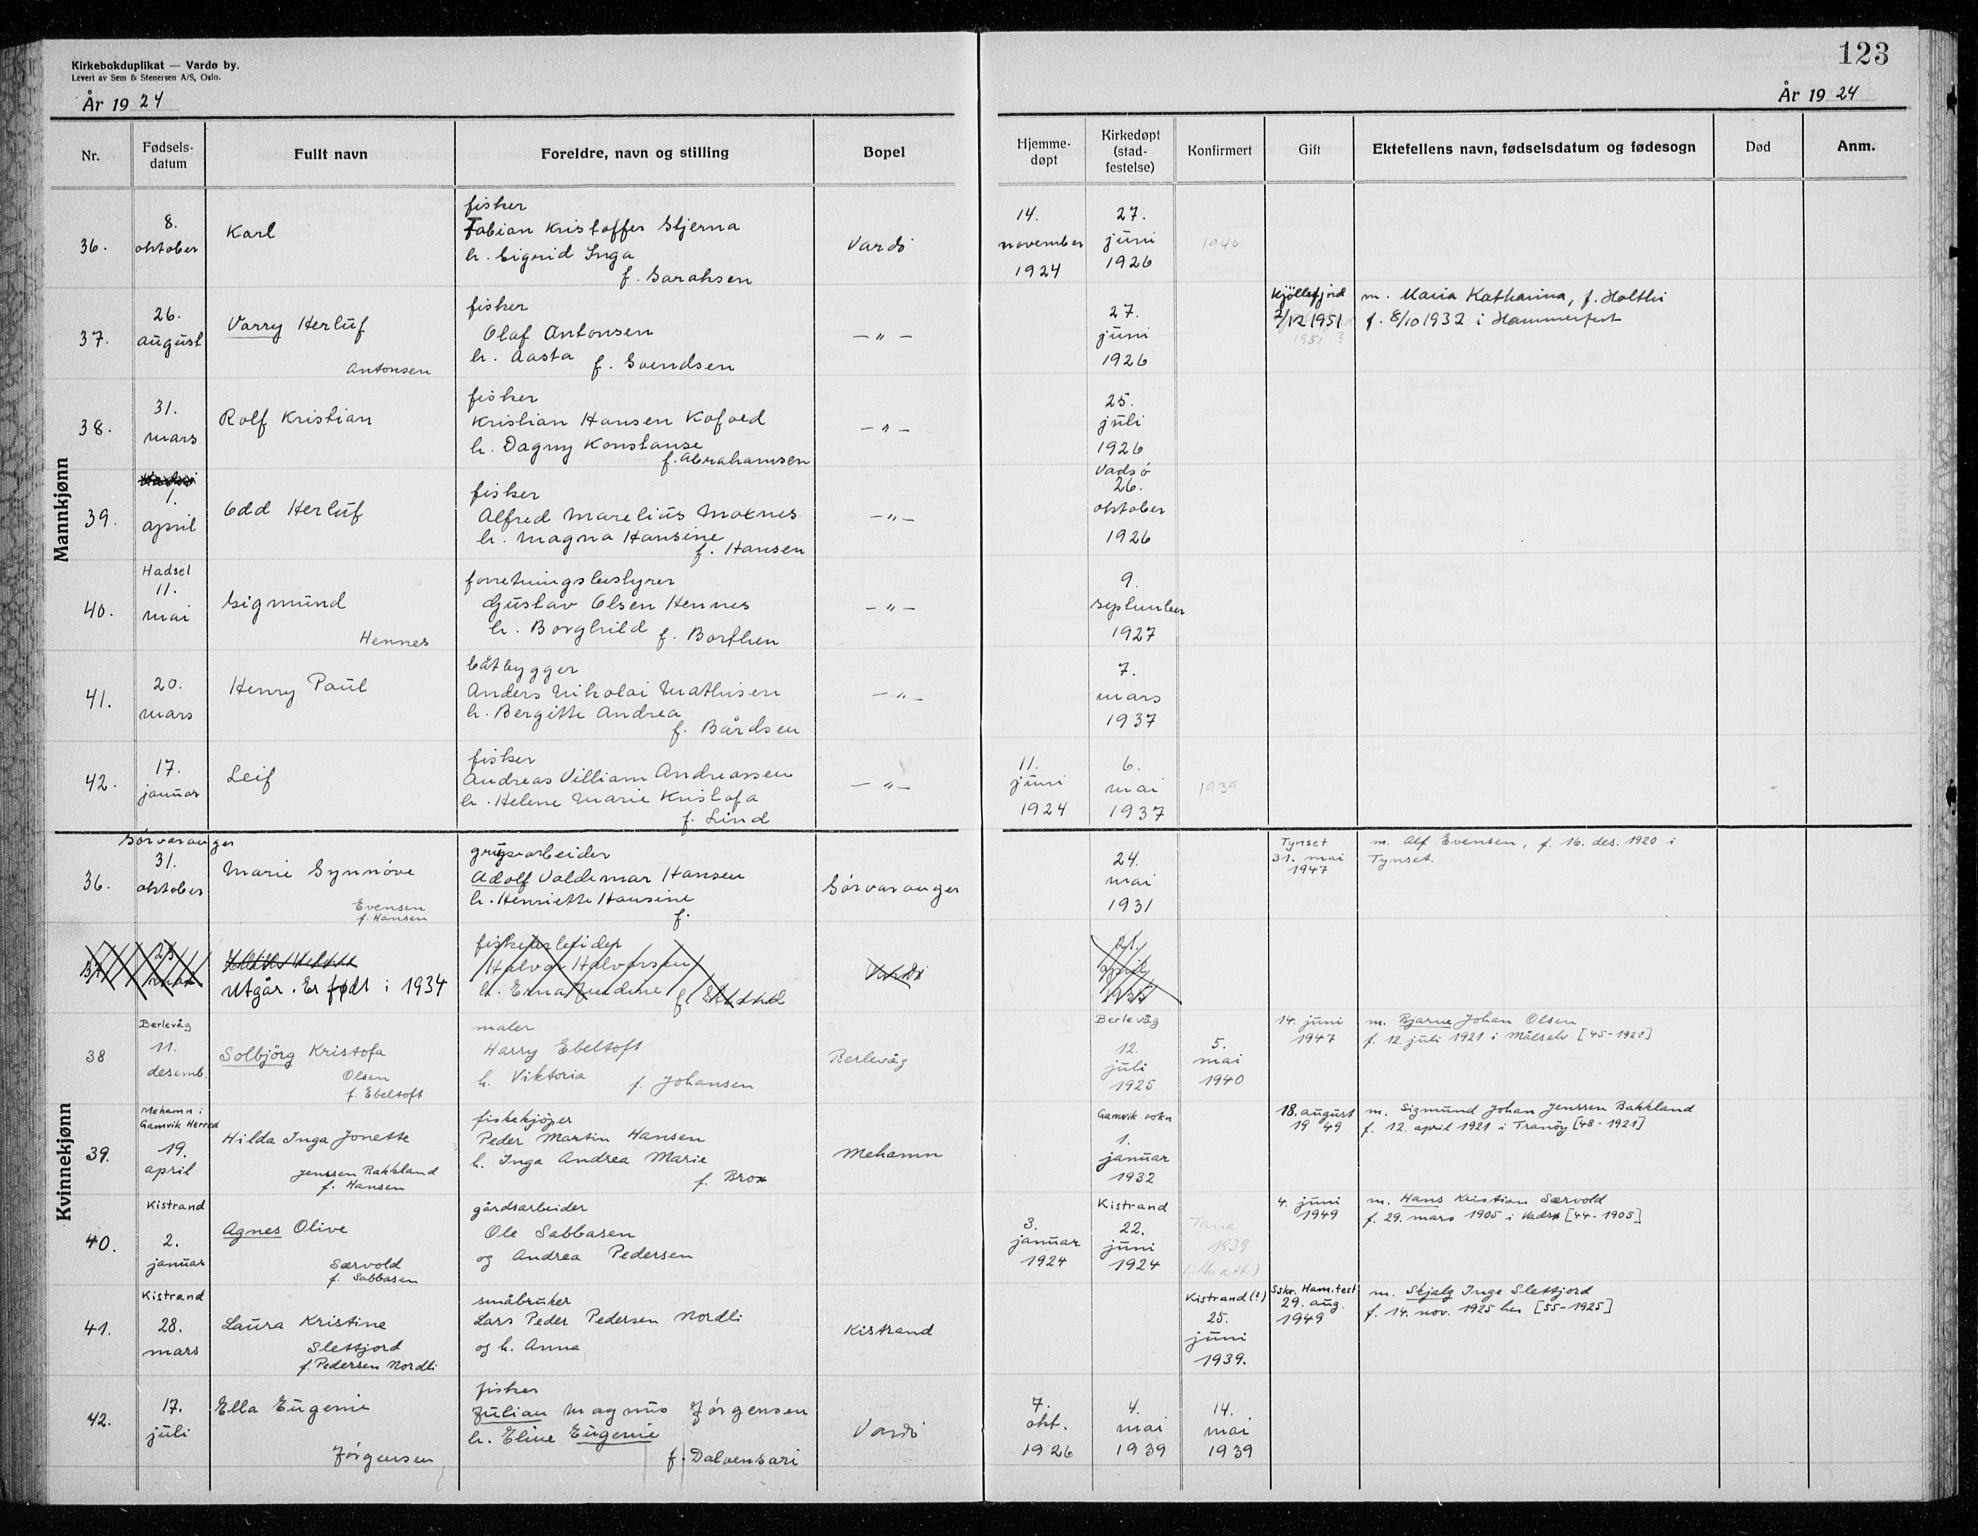 123
Kirkebokduplikat — Vardø by.
Levert av Sem & Stenersen A/S, Oslo.
År 1924
År 1924
Nr.
Fødsels-
datum
Fullt navn
Foreldre, navn og stilling
Bopel
Hjemme-
døpt
Kirkedøpt
(stad-
festelse)
Konfirmert
Gift
Ektefellens navn, fødselsdatum og fødesogn
Død
Anm.
Mannkjønn
36.
8.
oktober
Karl
fisker
Fabian Kristoffer Stjerna
h. Sigrid Inga
f. Saraksen
Vardö
14.
november
1924
27.
juni
1926
1940
37.
26.
august
Varry Herluf
Antonsen
fisker
Olaf Antonsen
h. Aasta f. Svendsen
— " —
27.
juni
1926
Kjøllefjord
2/12 1951
1951 ?
m. Maria Katharina, f. Holthi
f. 8/10 1932 i Hammerfest
38.
31.
mars
Rolf Kristian
fisker
Kristian Hansen Kofoed
h. Dagny Konstanse
f. Abrahamsen
— " —
25.
juli
1926
39.
1.
april
Odd Herluf
fisker
Alfred Marelius Moxnes
h. Magna Hansine
f. Hansen
— " —
Vadsö
26.
oktober
1926
40.
Hadsel
11.
mai
Sigmund
Hennes
forretningsbestyrer
Gustav Olsen Hennes
h. Borghild f. Borthen
— " —
9.
september
1927
41.
20.
mars
Henry Paul
båtbygger
Anders Nikolai Mathisen
h. Bergitte Andrea
f. Bårdsen
— " —
7.
mars
1937
42.
17.
januar
Leif
fisker
Andreas Villiam Andreassen
h. Helene Marie Kristofa
f. Lind
— " —
11.
juni
1924
6.
mai
1937
1939
Kvinnekjønn
36.
Sørvaranger
31.
oktober
Marie Synnöve
Evensen
f. Hansen
grubearbeider
Adolf Valdemar Hansen
h. Henriette Hansine
f.
Sörvaranger
24.
mai
1931
Tynset
31. mai
1947
m. Alf Evensen, f. 16. des. 1920 i
Tynset.
37.
23.
Utgår. Er født i 1934
fiskearbeider
Halvor Halvorsen
h. Erna
f.
Vardö
21.
april
1935
38
Berlevåg
11.
desemb.
Solbjörg Kristofa
Olsen
f. Ebeltoft
maler
Harry Ebeltoft
h. Viktoria f. Johansen
Berlevåg
Berlevåg
12.
juli
1925
5.
mai
1940
14. juni
1947
m. Bjarne Johan Olsen
f. 12. juli 1921 i Målselv [45-1921]
39.
Mehamn i
Gamvik Herred
19.
april
Hilda Inga Jonette
Jenssen Bakkland
f. Hansen
fiskekjøper
Peder Martin Hansen
h. Inga Andrea Marie
f. Brox
Mehamn
Gamvik sokn
1.
januar
1932
18. august
1949
m. Sigmund Johan Jenssen Bakkland
f. 12. april 1921 i Tranöy [48-1921]
40.
Kistrand
2.
januar
Agnes Olive
Særvold
f. Sabbasen
gårdsarbeider
Ole Sabbasen
og Andrea Pedersen
3.
januar
1924
Kistrand
22.
juni
1924
Tana
1939
4. juni
1949
m. Hans Kristian Særvold
f. 29. mars 1905 i Vadsø [44-1905]
41.
Kistrand
28.
mars
Laura Kristine
Slettjord
f. Pedersen Nordli
småbruker
Lars Peder Pedersen Nordli
og h. Anna
Kistrand
Kistrand (?)
25.
juni
1939.
Sskr. Ham.fest
29. aug.
1949
m. Skjalg Inge Slettjord
f. 14. nov. 1925 her [55-1925]
42.
17.
juli
Ella Eugenie
Jörgensen
fisker
Julian Magnus Jörgensen
h. Eline Eugenie
f. Dalvensari
Vardö
7.
okt.
1926
4.
mai
1939
14.
mai
1939